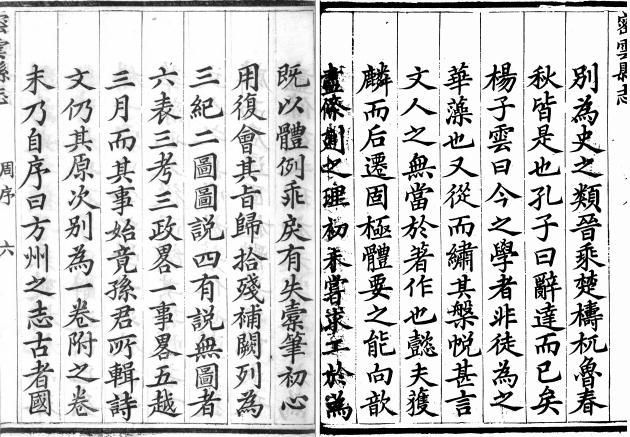 既以體例乖戾有失橐筆初心
用復會其旨歸拾殘補闕列為
三紀二圖圖說四有說無圖者
六表三考三政畧一事畧五越
三月而其事始竟孫君所輯詩
文仍其原次別為一卷附之卷
末乃自序曰方州之志古者國
密雲縣志
周序
六
密雲縣志
別為史之類晉乘楚檮杌魯春
秋皆是也孔子曰辭達而已矣
楊子雲曰今之學者非徒為之
華藻也又從而繡其槃帨甚言
文人之無當於著作也懿夫獲
麟而后遷固極體要之能向歆
盡條別之理初未嘗求工於為